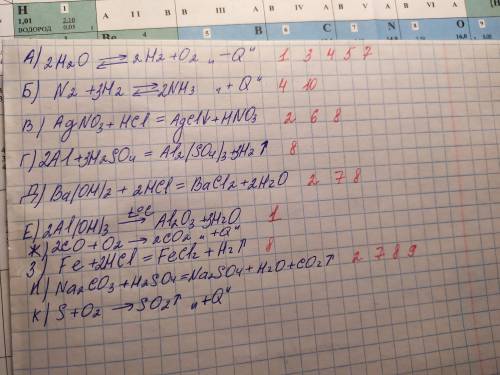 H 1
1,01 2,10
ВОДОРОД
A II B A III B A IV B A V B
5 B 6 C 7 N 8 O
А) 2H2O ⇄ 2H2+O2 „-Q“ 1 3 4 5 7
Б) N2+3H2 ⇄ 2NH3 „+Q“ 4 10
В) AgNO3+HCl = AgCl↓+HNO3 2 6 8
Г) 2Al+3H2SO4 = Al2(SO4)3+3H2↑ 8
Д) Ba(OH)2 + 2HCl = BaCl2+2H2O 2 7 8
Е) 2Al(OH)3 →t°C Al2O3+3H2O 1
Ж) 2CO+O2 → 2CO2 „+Q“
З) Fe+2HCl = FeCl2+H2↑ 8
И) Na2CO3+H2SO4=Na2SO4+H2O+CO2↑ 2 7 8 9
К) S+O2 → SO2↑ „+Q“